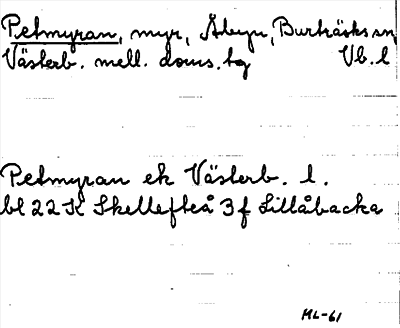 Petmyran, myr, Åbyn, Burträsks sn
Västerb. mell. doms. tg Vb. l
Petmyran ek Västerb. l.
bl 22 K Skellefteå 3 f Lillåbacka
ML-61